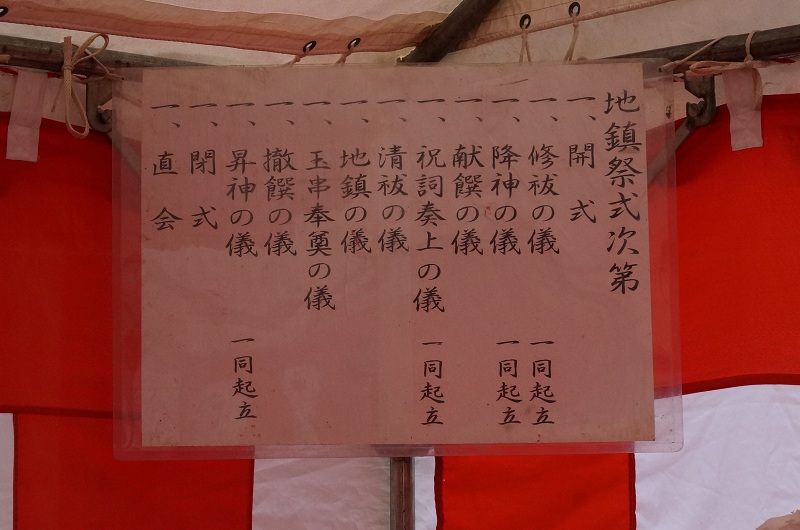 地鎮祭式次第
一、開式
一、修祓の儀 一同起立
一、降神の儀 一同起立
一、献饌の儀
一、祝詞奏上の儀 一同起立
一、清祓の儀
一、地鎮の儀
一、玉串奉奠の儀
一、撤饌の儀
一、昇神の儀 一同起立
一、閉式
一、直会